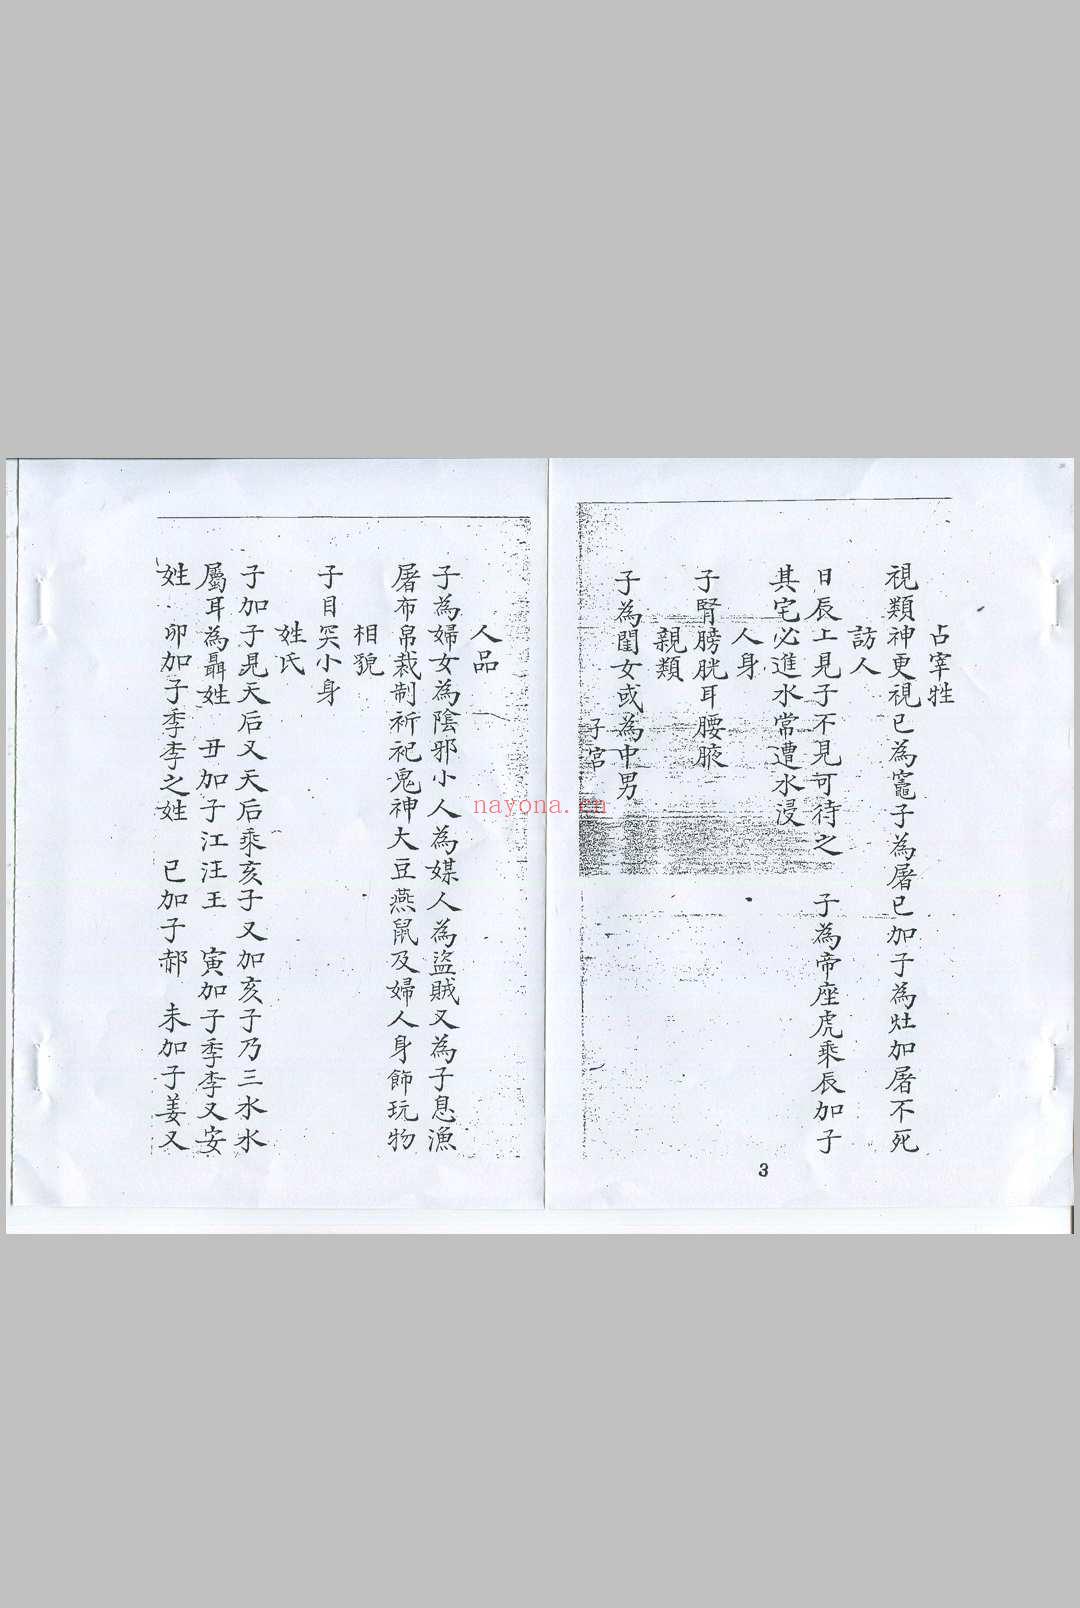 占宰牲
視類神更視巳為竈子為屠巳加子為灶加屠不死
訪人
日辰上見子不見可待之　子為帝座虎乘辰加子
其宅必進水常遭水浸
人身
子腎膀胱耳腰腋
親類
子為閨女或為中男
子宮
3
人品
子為婦女為陰邪小人為媒人為盜賊又為子息漁
屠布帛裁制祈祀鬼神大豆燕鼠及婦人身飾玩物
相貌
子目突小身
姓氏
子加子是天后又天后乘亥子又加亥子乃三水水
屬耳為聶姓　丑加子江汪王　寅加子季李又安
姓　卯加子季李之姓　巳加子郝　未加子姜又
nayona.cn